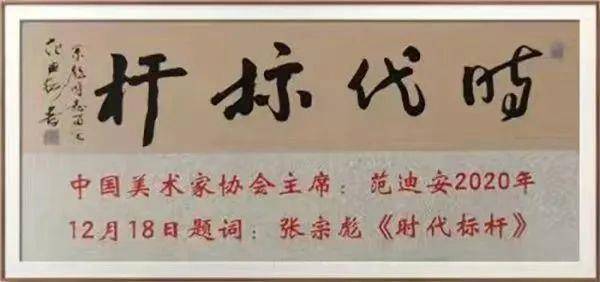 時代标杆
范迪安书
中国美术家协会主席：范迪安2020年
12月18日题词：张宗彪《时代标杆》